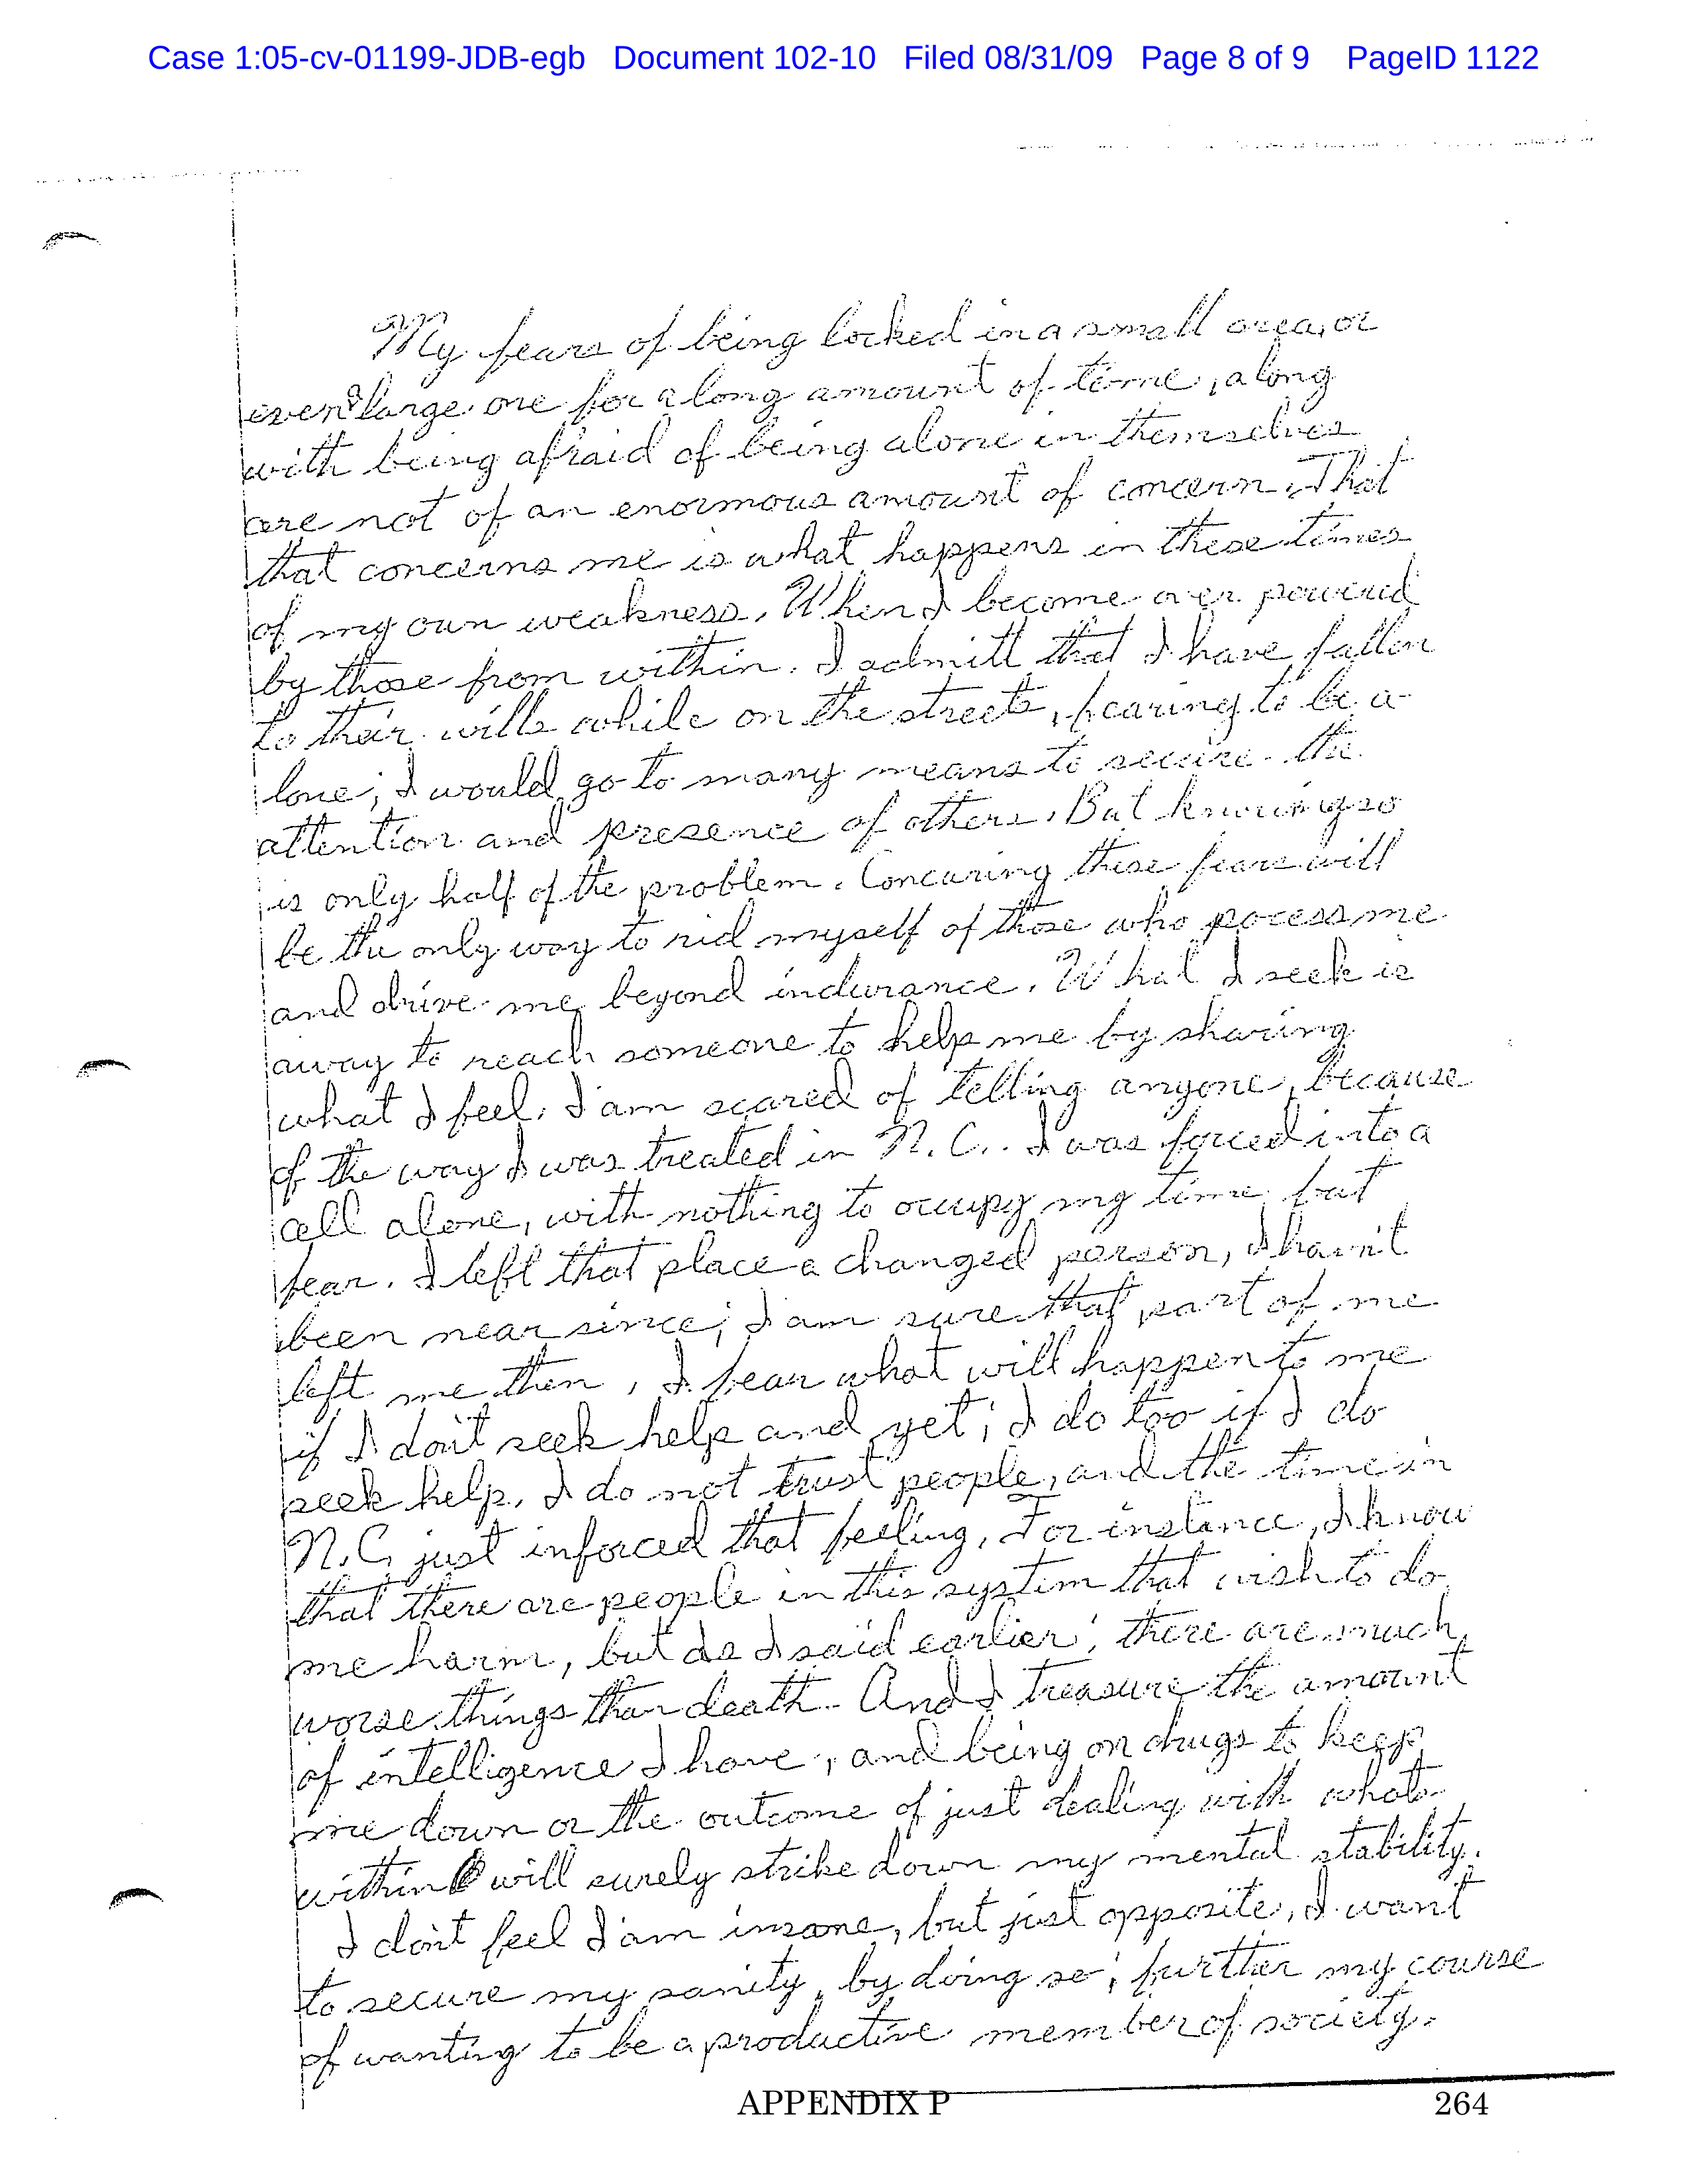 Case 1:05-cv-01199-JDB-egb Document 102-10 Filed 08/31/09 Page 8 of 9 PageID 1122
My fears of being locked in a small area, or
even a large one for a long amount of time, along
with being afraid of being alone in themselves
are not of an enormous amount of concern. That
that concerns me is what happens in these times
of my own weakness. When I become over powered
by those from within. I admitt that I have fallen
to their wills while on the streets, fearing to be a
lone; I would go to many means to secure the
attention and presence of others. But knowing so
is only half of the problem. Concuring these fears will
be the only way to rid myself of those who pocess me
and drive me beyond indurance. What I seek is
away to reach someone to help me by sharing
what I feel. I am scared of telling anyone, because
of the way I was treated in N.C.. I was forced into a
cell alone, with nothing to occupy my time but
fear. I left that place a changed person, I havn't
been near since; I am sure that part of me
left me then, I fear what will happen to me
if I don't seek help and yet; I do too if I do
seek help. I do not trust people, and the time in
N.C. just inforced that feeling. For instance, I know
that there are people in this system that wish to do
me harm, but as I said earlier; there are much
worse things than death. And I treasure the amount
of intelligence I have, and being on drugs to keep
me down or the outcome of just dealing with whats
within will surely strike down my mental stability.
I don't feel I am insane, but just opposite, I want
to secure my sanity, by doing so; further my course
of wanting to be a productive member of society.
APPENDIX P 264